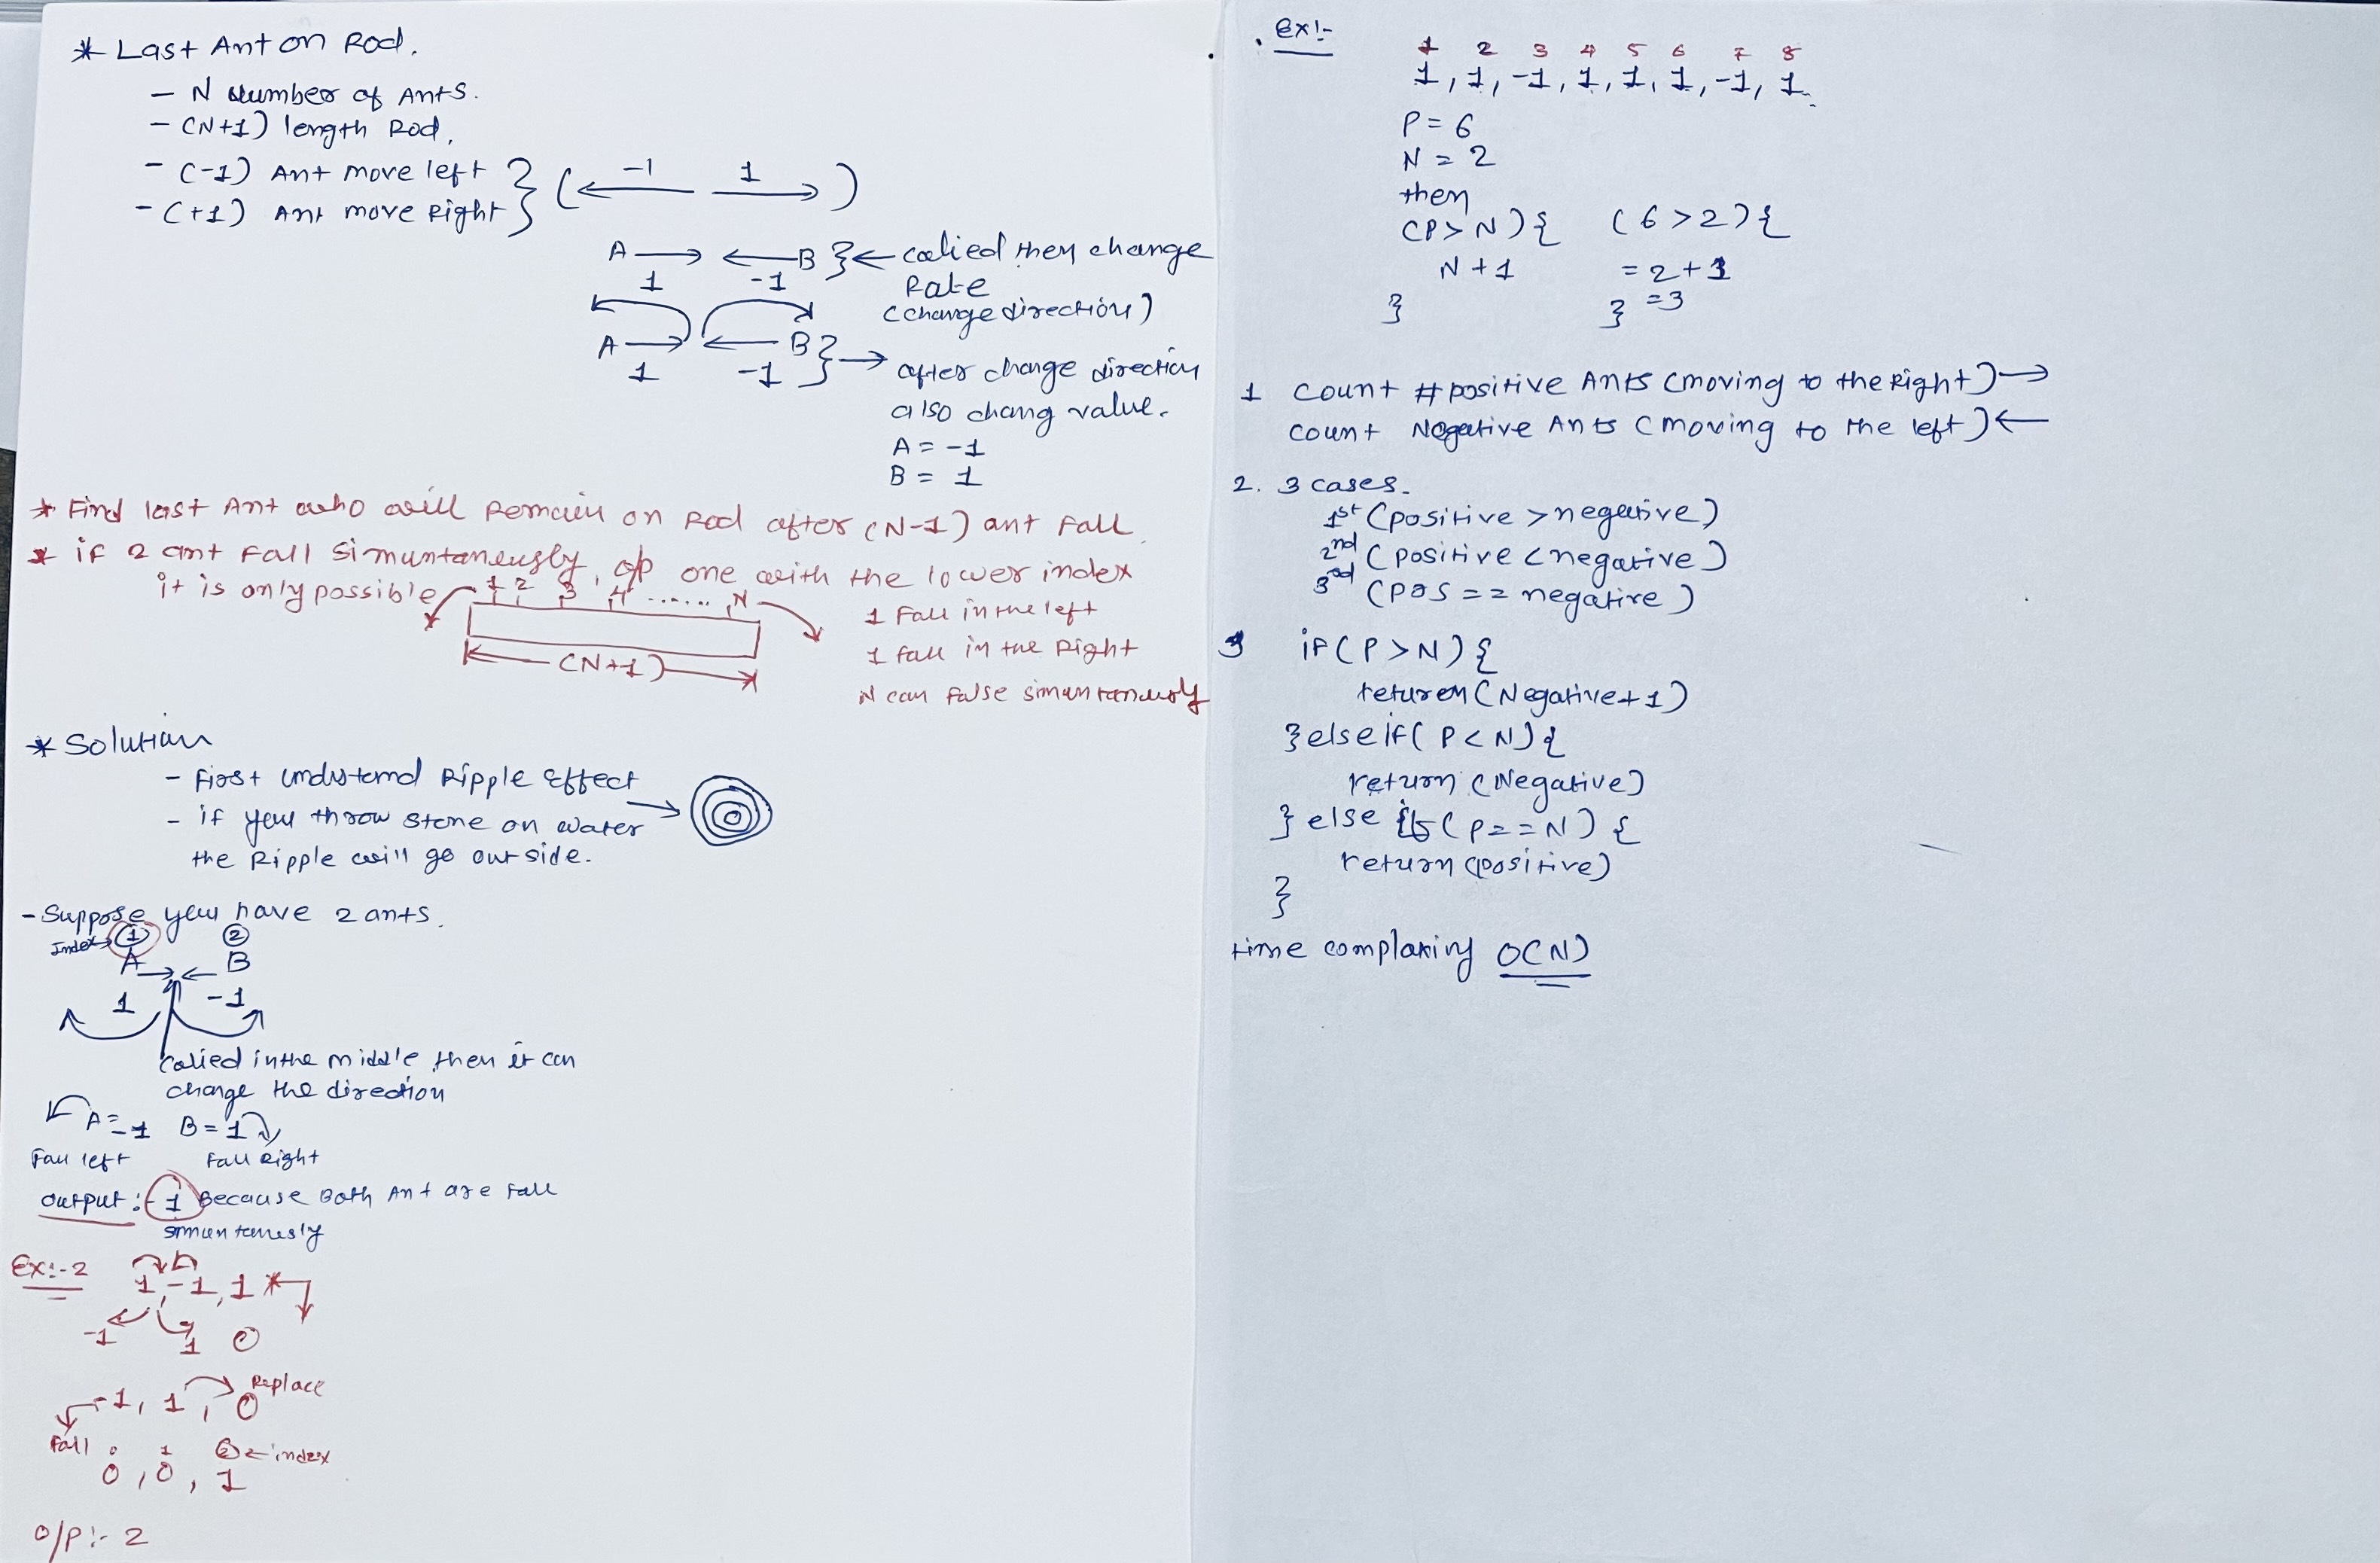 * Last Ant on Rod.
- N Number of Ants.
- (N+1) length Rod.
- (-1) Ant move left
- (+1) Ant move Right
-1 1
A B ← colied then change
1 -1 Rate
(change direction)
A B → after change direction
1 -1 also chang value.
A = -1
B = 1
* Find last Ant who will Remain on Rod after (N-1) ant Fall
* if 2 ant Fall Simuntaneusly, o/p one with the lower index
it is only possible 1 2 3 4 ...... N
1 Fall in the left
1 fall in the Right
(N+1)
N can false simuntanously
* Solution
- First undustemd Ripple Effect
- if you throw stone on water
the Ripple will go out side.
- Suppose you have 2 ants.
Index → 1 2
A → ← B
1 -1
Colied in the middle then it can
change the direction
A = -1 B = 1
Fall left Fall Right
output :- 1 Because Both Ant are Fall
simuntenesly
Ex:-2 1, -1, 1 *
-1 1 0
-1, 1, 0 Replace
Fall 0 1 2 ← index
0, 0, 1
O/P :- 2
Ex:-
1 2 3 4 5 6 7 8
1, 1, -1, 1, 1, 1, -1, 1.
P = 6
N = 2
then
(P > N) { (6 > 2) {
N + 1 = 2 + 1
} } = 3
1 Count # positive Ants (moving to the Right) →
count Negative Ants (moving to the left) ←
2. 3 cases.
1st (positive > negative)
2nd (positive < negative)
3rd (pos == negative)
3 if (P > N) {
return (Negative+1)
} else if ( P < N) {
return (Negative)
} else if (P == N) {
return (positive)
}
time complaxivy O(N)